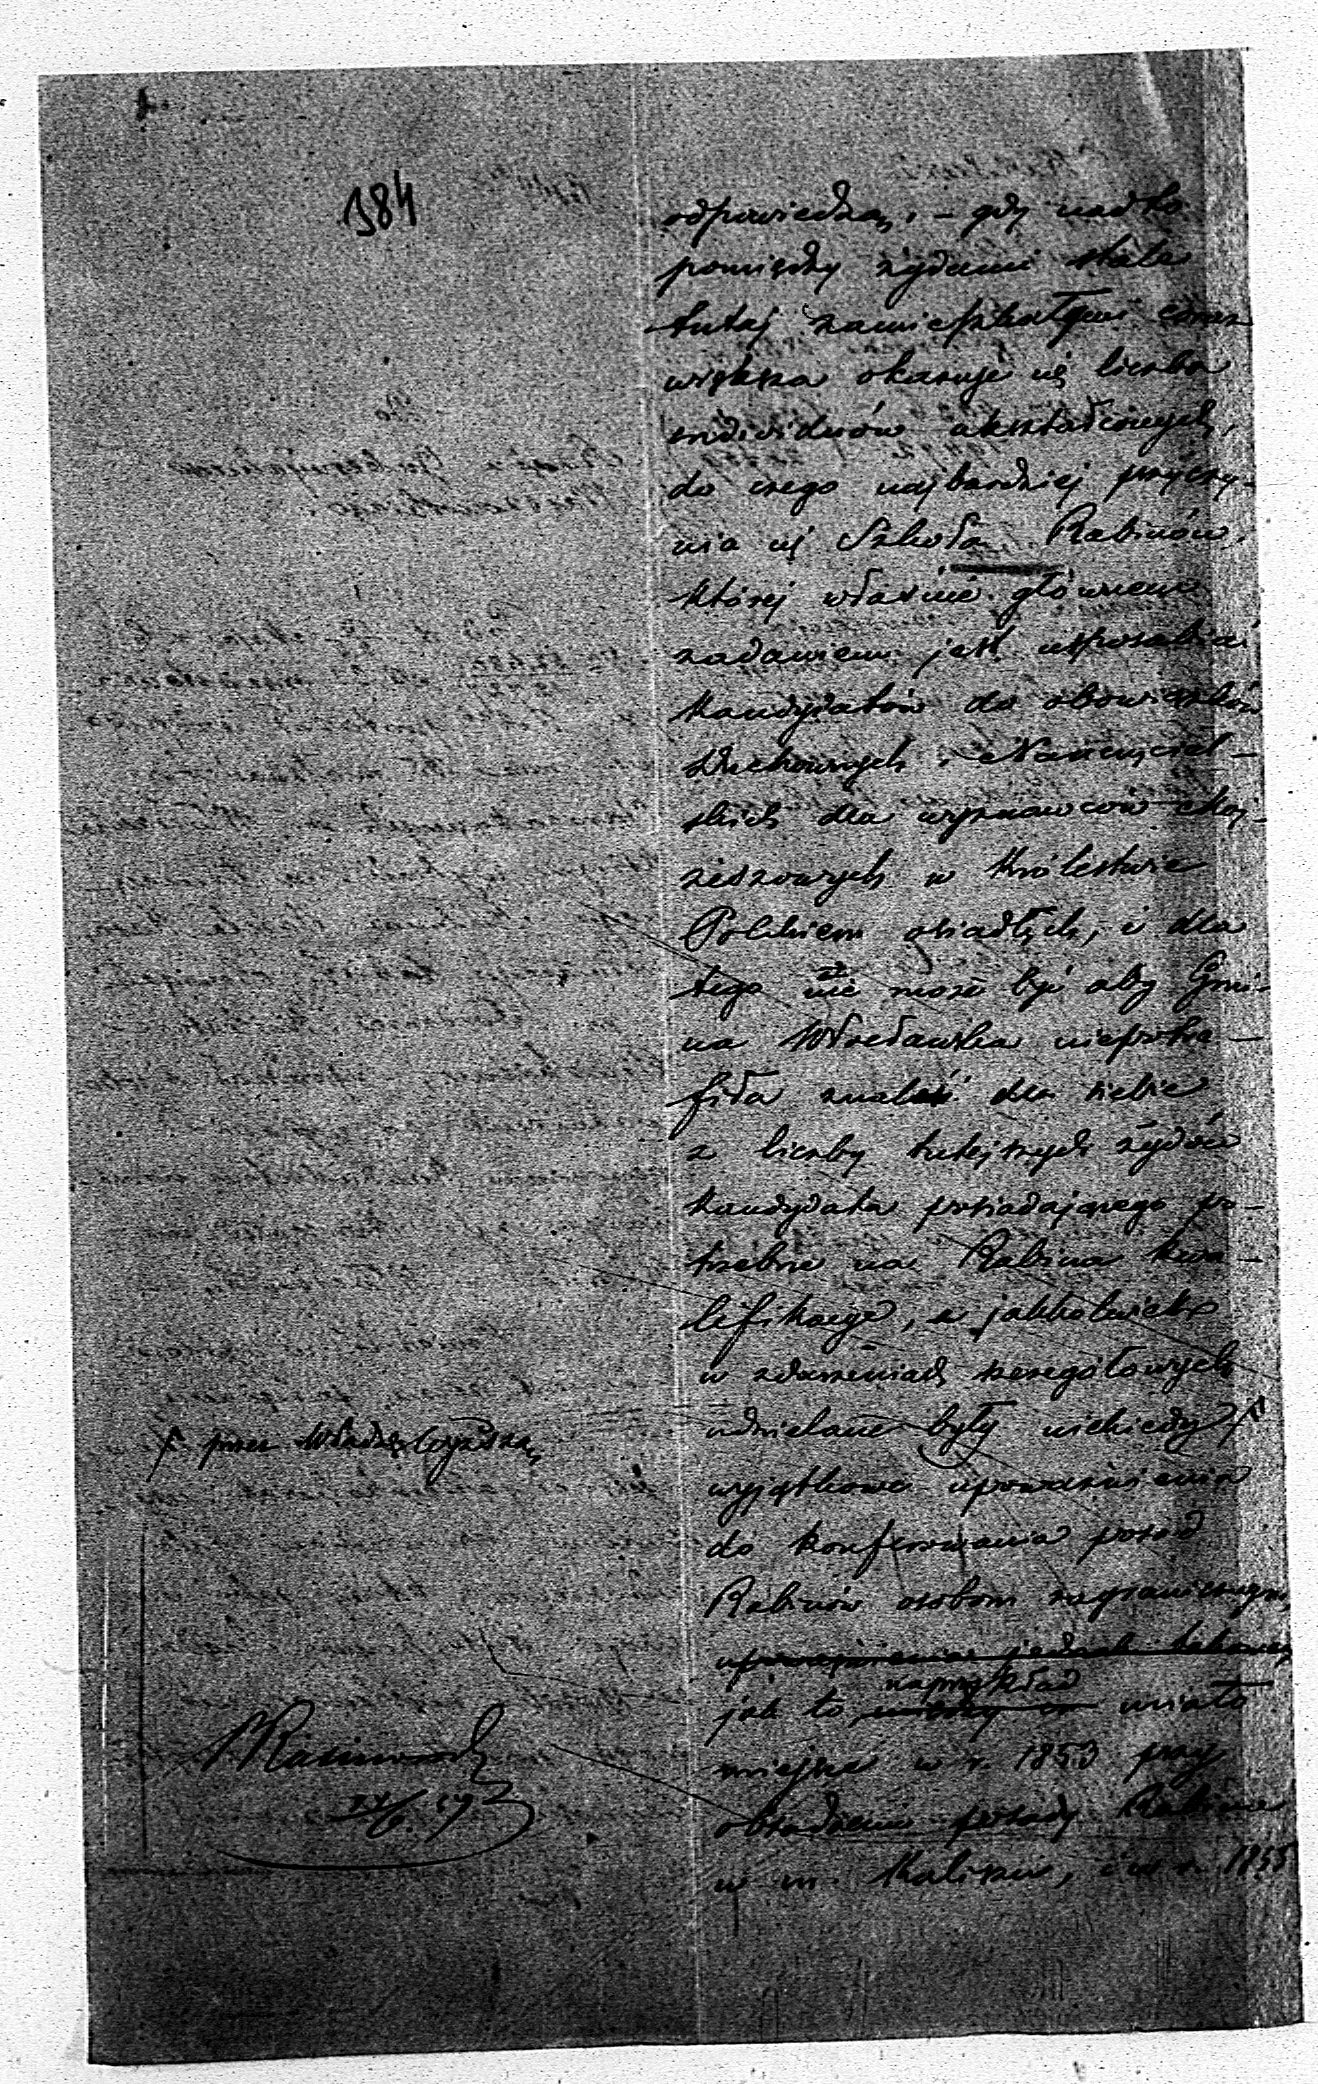 384
odpowiedzą, – gdy nadto
pomiędzy żydami stale
tutaj zamieszkałymi coraz
większa okazuje się liczba
indywiduów ukształconych,
do czego najbardziej przyczy-
nia się Szkoła Rabinów,
której właśnie głównem
zadaniem jest usposabiać
kandydatów do obowiązków
Duchownych i Nauczyciel-
skich dla wyznawców Moj-
żeszowych w Królestwie
Polskiem osiadłych, i dla
tego nie może być aby Gmi-
na Włocławska niepotra-
fiła znaleść dla siebie
z liczby tutejszych żydów
kandydata posiadającego po-
trzebne na Rabina kwa-
lifikacye, a jakkolwiek
w zdarzeniach szczegółowych
udzielane były niekiedy F
F przez Władzę Wyższą
wyjątkowe upoważnienia
do konferowania posad
Rabinów osobom zagranicznym,
upoważnienia jednak takowe
naprzykład
jak to miało
miejsce w r. 1853 przy
obsadzeniu posady Rabina
w m. Kaliszu, i w r. 1855